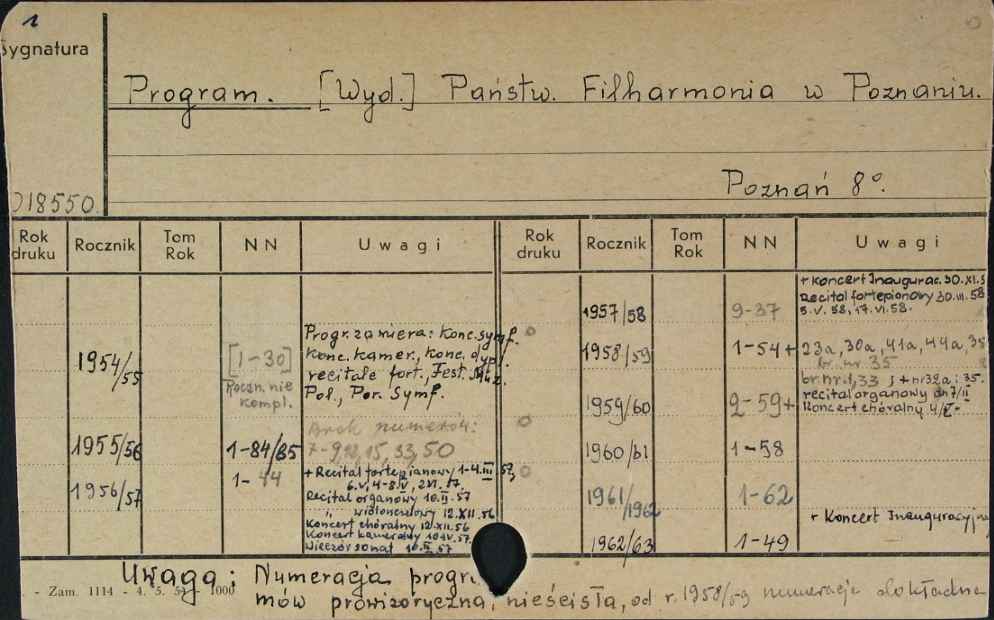 1
Sygnatura
Program. [Wyd.] Państw. Filharmonia w Poznaniu.
Poznań 8º.
018550
Rok druku Rocznik Tom Rok NN Uwagi Rok druku Rocznik Tom Rok NN Uwagi
1954/55 [1-30]
Roczn. nie
kompl.
Progr. zawiera: Konc. symf.
Konc. kamer., konc. dypl.
recitale fort., Fest. Muz.
Pol., Por. Symf.
1955/56 1-84/85
Brak numerów:
15, 33, 50
1956/57 1-44
+ Recital fortepianowy 1-4.III
Recital organowy 10.II.57
" wiolonczelowy 12.XII.56
Koncert chóralny 12.XII.56
Koncert kameralny 10.IV.57.
Wieczór sonat 10.II.57
1957/58 9-37
+ Koncert Inaugurac. 30.XI.5
Recital fortepianowy 30.III.58
5.V.58, 17.VI.58.
1958/59 1-54+ 23a, 30a, 41a, 44a, 35
br. nr 35
1959/60 2-59+
br. nr 1, 33 ; + nr 32a i 35.
recital organowy dn 7/II
Koncert chóralny 4/V-
1960/61 1-58
1961/1962 1-62
+ Koncert Inauguracyjny
1962/63 1-49
Uwaga: Numeracja progra
mów prowizoryczna, nieścisła, od r. 1958/59 numeracja dokładna
- Zam. 1114 - 4. 5. 54 - 1000